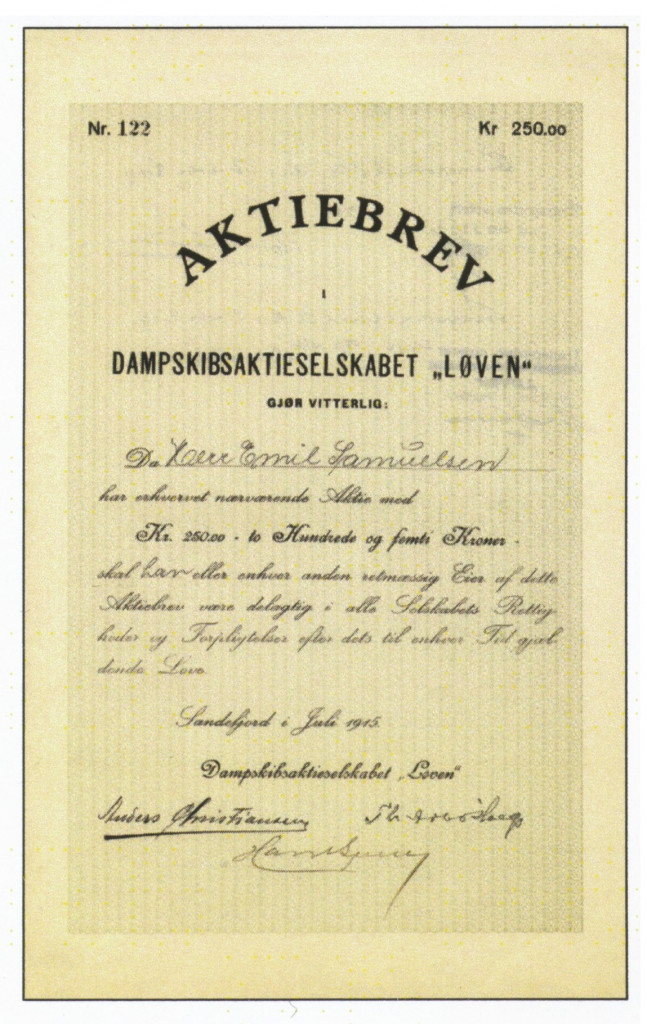 Nr. 122
Kr 250.00
AKTIEBREV
I
DAMPSKIBSAKTIESELSKABET „LØVEN“
GJØR VITTERLIG:
Da Herr Emil Samuelsen
har erhvervet nærværende Aktie med
Kr. 250.00 - to Hundrede og femti Kroner -
skal han eller enhver anden retmæssig Eier af dette
Aktiebrev være delagtig i alle Selskabets Rettig-
heder og Forpligtelser efter dets til enhver Tid gjæl-
dende Love.
Sandefjord i Juli 1915.
Dampskibsaktieselskabet „Løven“
Anders Christiansen
Th